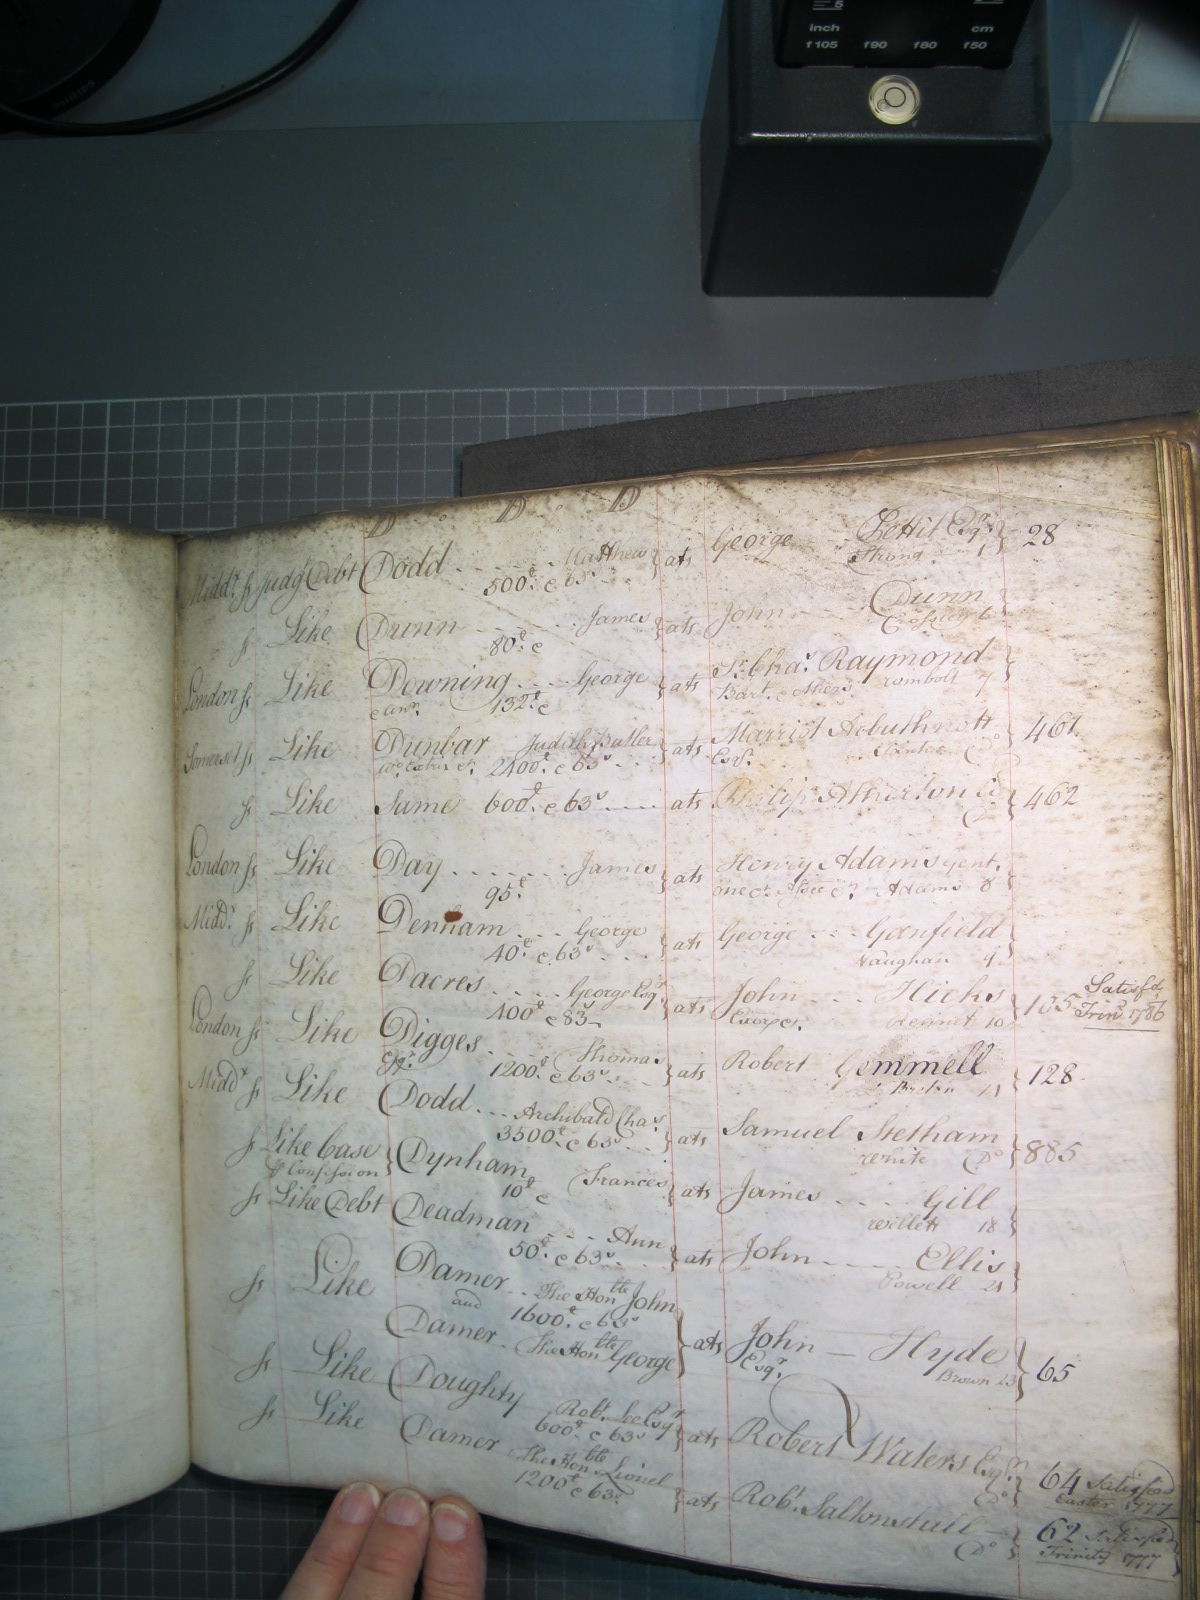 5
inch cm
f105 f90 f80 f50
PHILIPS
D . D . D
Midd.x ss Judg.t Debt Dodd ....... Matthew } ats George Pettit Esq.r } 28
500.£ & 63.s Strong 1
ss Like Dunn ....... James } ats John .... Dunn
80.£ &
London ss Like Downing .... George } ats S.r Cha.s Raymond
132.£ & Bart. & others 7
Somerset ss Like Dunbar Judith Butler } ats Marriot Arbuthnott } 461
2400.£ & 63.s ... Esq.r D.o
ss Like Same 600.£ & 63.s .... ats Philip Atherton } 462
London ss Like Day ....... James } ats Henry Adams gent.
95.£ one &c. Adams 8
Midd.x ss Like Denham ... George } ats George ... Ganfield
40.£ & 63.s ... Vaughan 9
ss Like Dacres .... George Esq.r } ats John ... Hicks } 105 Satisf.d
100.£ & 83.s Kennet 10 Trin.y 1786
London ss Like Digges .... Thomas } ats Robert Gemmell } 128
Esq.r 1200.£ & 63.s .... Breton 11
Midd.x ss Like Dodd ... Archibald Cha.s } ats Samuel Stetham } 885
3500.£ & 63.s ... White D.o
ss Like Case Dynham Frances } ats James .... Gill
Confession 10.£ & Willett 18
ss Like Debt Deadman ... Ann } ats John ..... Ellis
50.£ & 63.s .... Powell 21
ss Like Damer .. The Hon.ble John
and 1600.£ & 63.s
Damer . The Hon.ble George } ats John — Hyde } 65
Esq.r Brown 23
ss Like Doughty Rob.t Lee Esq.r } ats Robert Waters Esq.r } 64 Satisfied
600.£ & 63.s D.o Easter 1777
ss Like Damer The Hon.ble Lionel } ats Rob.t Saltonstall — } 62 Satisfied
1200.£ & 63.s D.o Trinity 1777